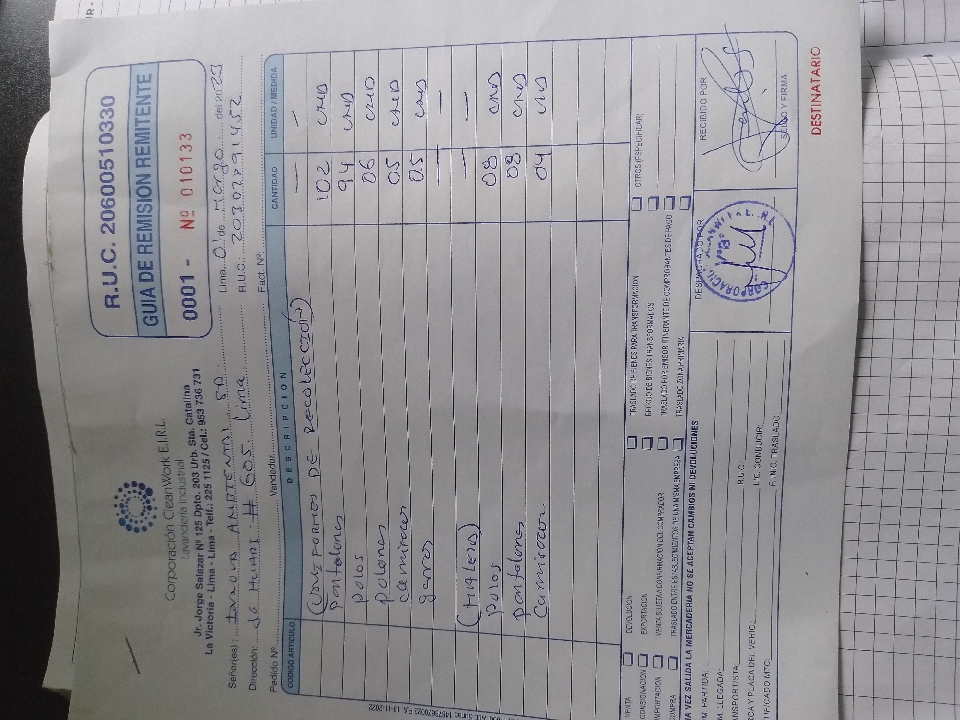 Corporación CreanWork E.I.R.L.
Lavandería Industrial
Jr. Jorge Salazar Nº 125 Dpto. 203 Urb. Sta. Catalina
La Victoria - Lima - Lima - Telf.: 225 1125 / Cel.: 953 736 731
R.U.C. 20600510330
GUIA DE REMISION REMITENTE
0001 - Nº 010133
Señor(es): Innova Ambiental SA. Lima, 01 de Marzo del 2025
Dirección: Jr Huari # 605 Lima R.U.C.: 20302891452
Pedido Nº Vendedor: Fact. Nº
CODIGO ARTICULO DESCRIPCION CANTIDAD UNIDAD / MEDIDA
(Uniformes de Recolección) — —
Pantalones 102 unid
polos 94 unid
polones 06 unid
camisacas 05 unid
gorros 05 unid
(Huleros) — —
Polos 08 unid
pantalones 08 unid
Camisaca 04 unid
VENTA DEVOLUCION TRASLADO DE BIENES PARA TRANSFORMACION OTROS (ESPECIFICAR)
CONSIGNACION EXPORTACION RECOJO DE BIENES TRANSFORMADOS
IMPORTACION VENTA SUJETA A CONFIRMACION DEL COMPRADOR TRASLADO POR EMISOR ITINERANTE DE COMPROBANTES DE PAGO
COMPRA TRASLADO ENTRE ESTABLECIMIENTOS DE UNA MISMA EMPRESA TRASLADO ZONA PRIMARIA
UNA VEZ SALIDA LA MERCADERIA NO SE ACEPTAN CAMBIOS NI DEVOLUCIONES
PARTIDA:
LLEGADA:
TRANSPORTISTA R.U.C.:
MARCA Y PLACA DEL VEHIC. LIC. CONDUCIR:
CERTIFICADO MTC: F. INC. TRASLADO
DESPACHADO POR
RECIBIDO POR
SELLO Y FIRMA
DESTINATARIO